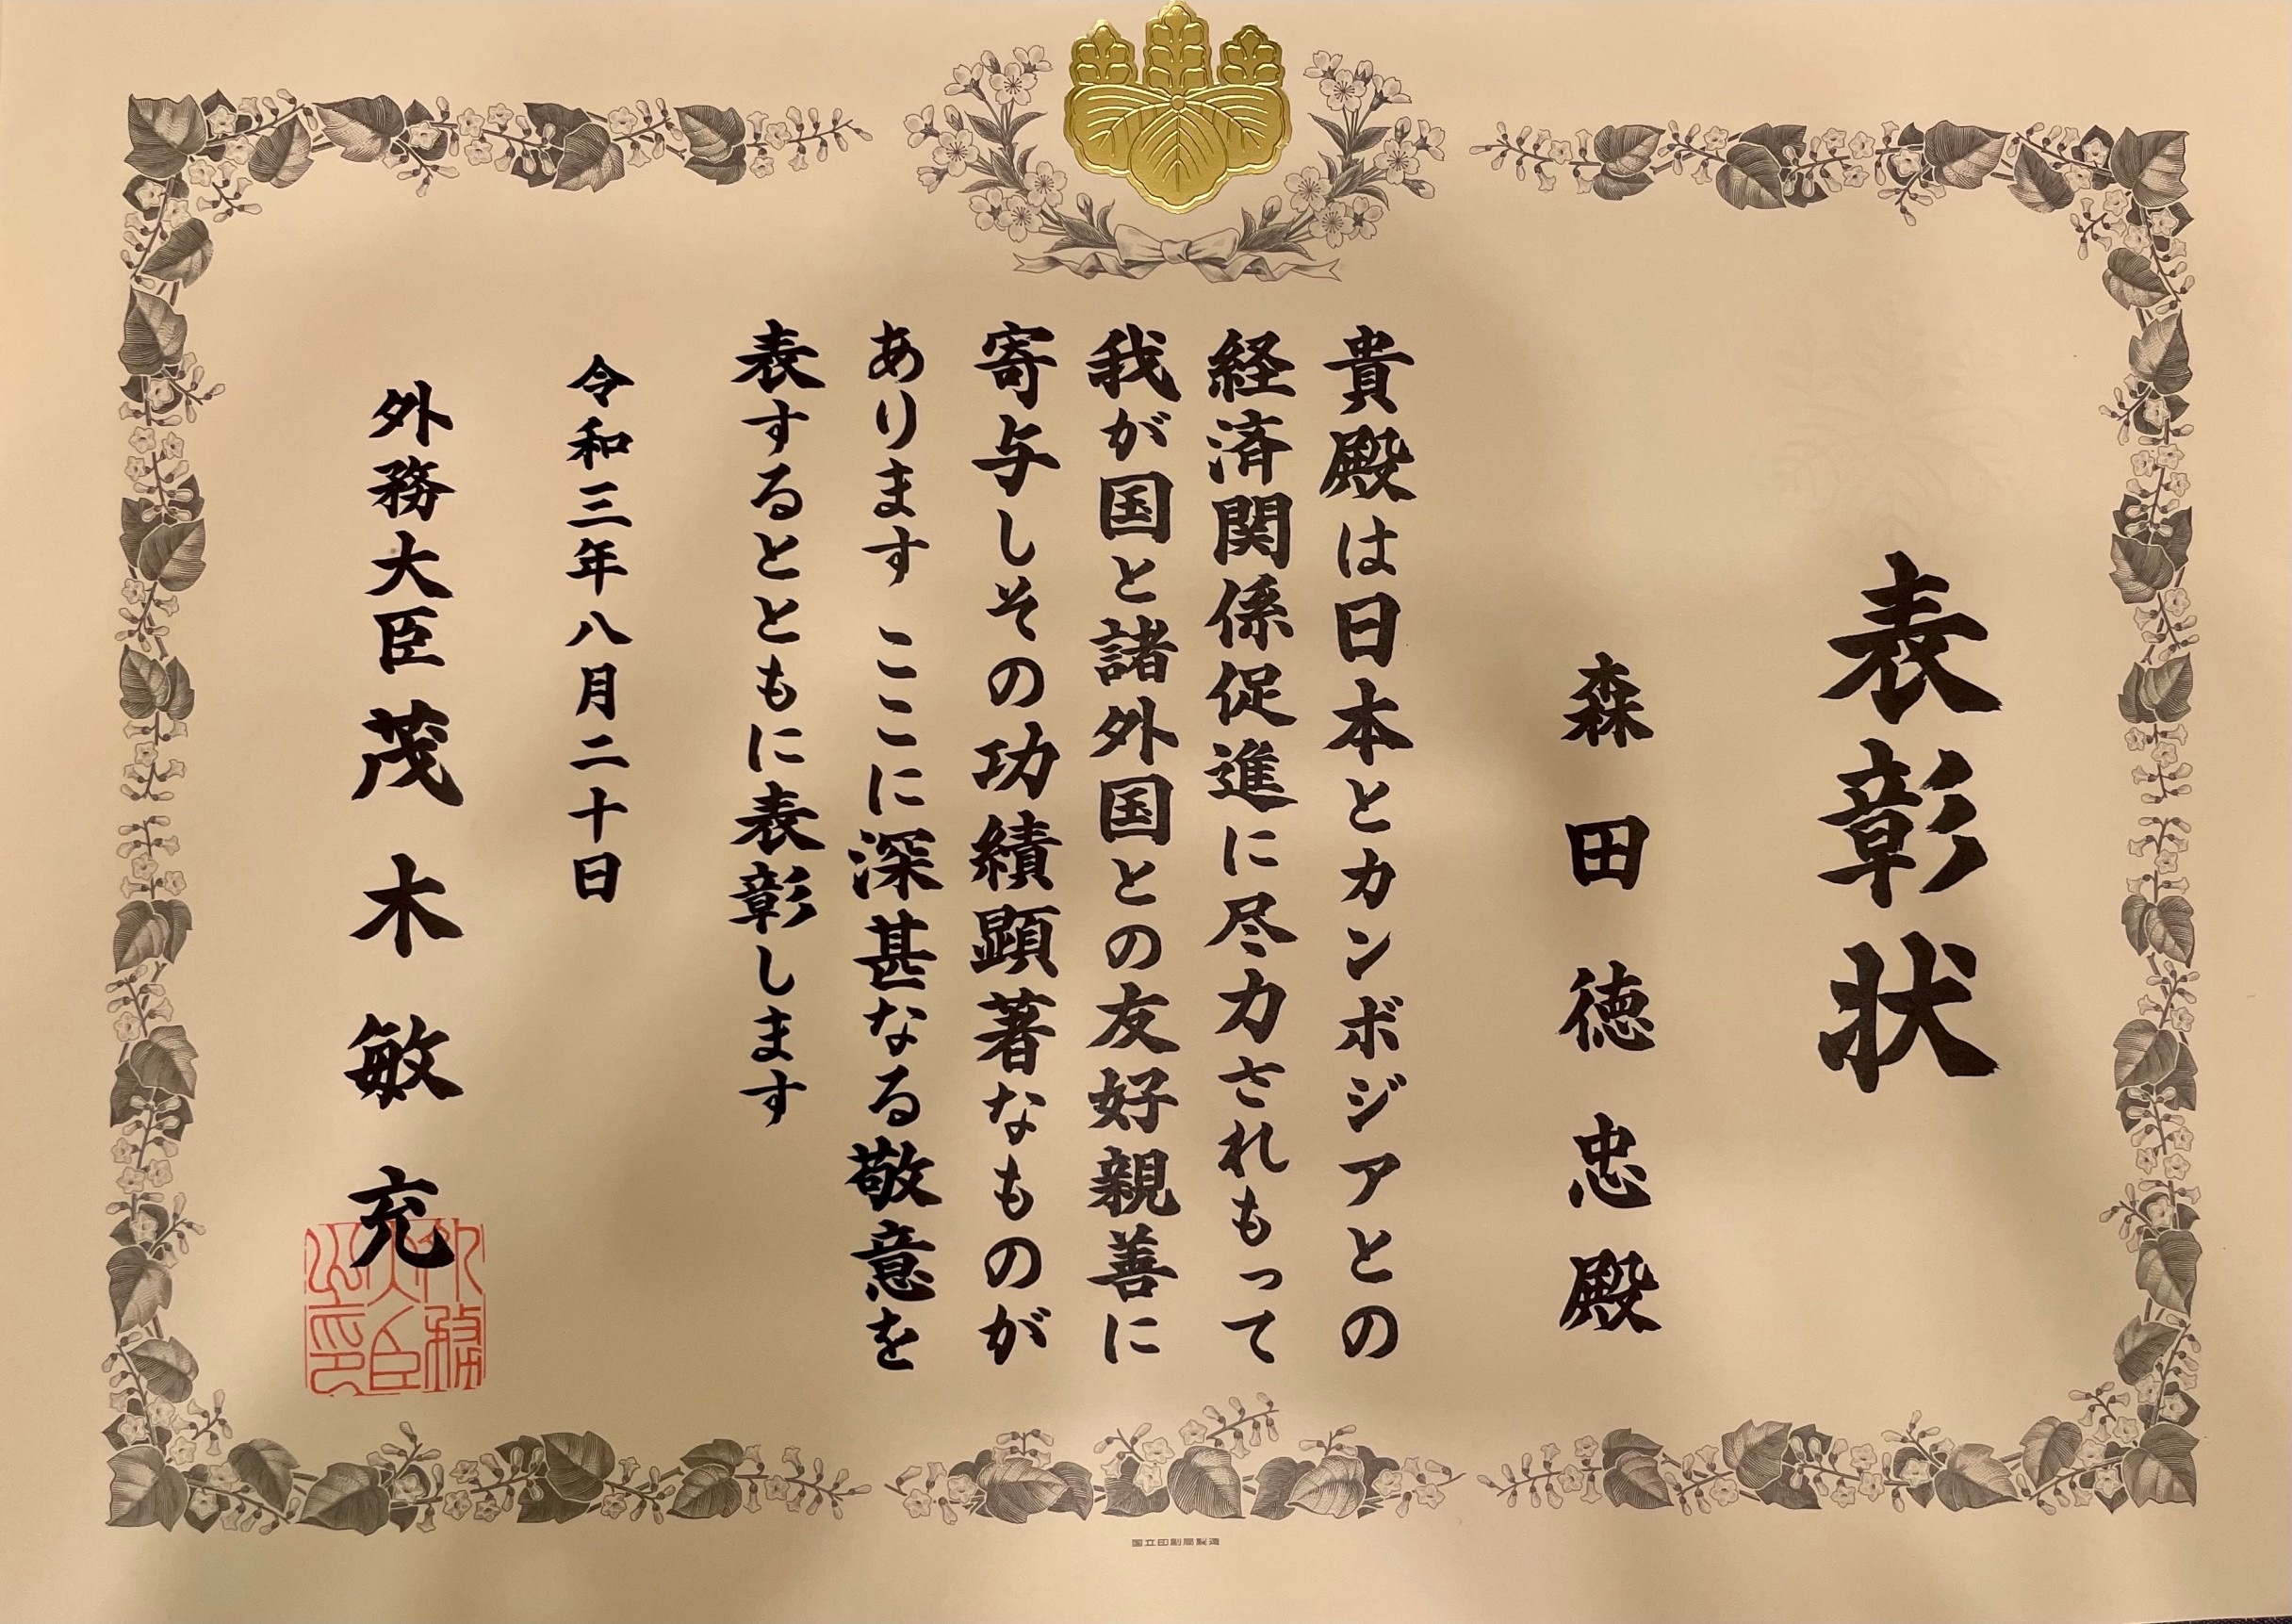 表彰状
森田徳忠殿
貴殿は日本とカンボジアとの
経済関係促進に尽力されもって
我が国と諸外国との友好親善に
寄与しその功績顕著なものが
あります ここに深甚なる敬意を
表するとともに表彰します
令和三年八月二十日
外務大臣 茂木敏充
外務大臣公印
国立印刷局製造